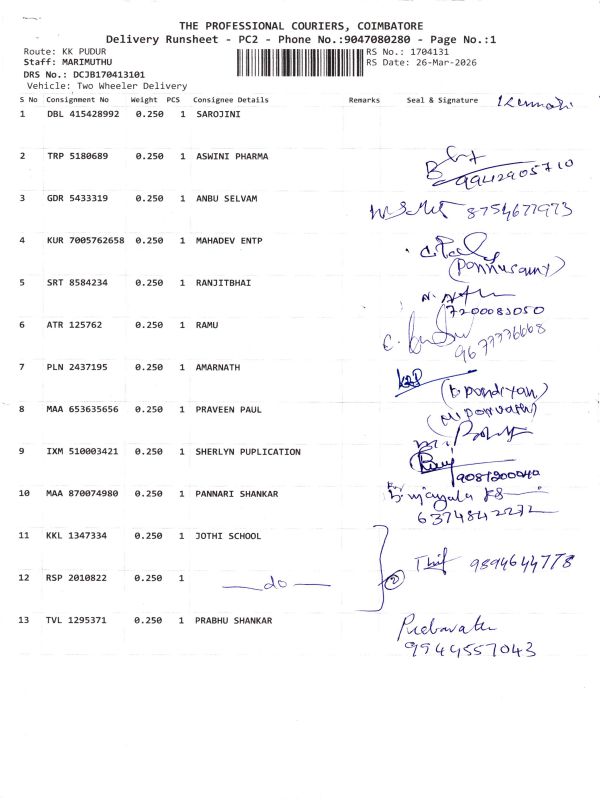 THE PROFESSIONAL COURIERS, COIMBATORE
Delivery Runsheet - PC2 - Phone No.:9047080280 - Page No.:1
Route: KK PUDUR RS No.: 1704131
Staff: MARIMUTHU RS Date: 26-Mar-2026
DRS No.: DCJB170413101
Vehicle: Two Wheeler Delivery
S No Consignment No Weight PCS Consignee Details Remarks Seal & Signature
1 DBL 415428992 0.250 1 SAROJINI
2 TRP 5180689 0.250 1 ASWINI PHARMA
9942905710
3 GDR 5433319 0.250 1 ANBU SELVAM 8754677973
4 KUR 7005762658 0.250 1 MAHADEV ENTP
(Ponnusamy)
5 SRT 8584234 0.250 1 RANJITBHAI
7200083050
6 ATR 125762 0.250 1 RAMU
9677776668
7 PLN 2437195 0.250 1 AMARNATH
(b pondiyan)
8 MAA 653635656 0.250 1 PRAVEEN PAUL
9 IXM 510003421 0.250 1 SHERLYN PUPLICATION
9087200040
10 MAA 870074980 0.250 1 PANNARI SHANKAR
6374842272
11 KKL 1347334 0.250 1 JOTHI SCHOOL
9894644778
12 RSP 2010822 0.250 1 —do— 2
13 TVL 1295371 0.250 1 PRABHU SHANKAR
9944557043